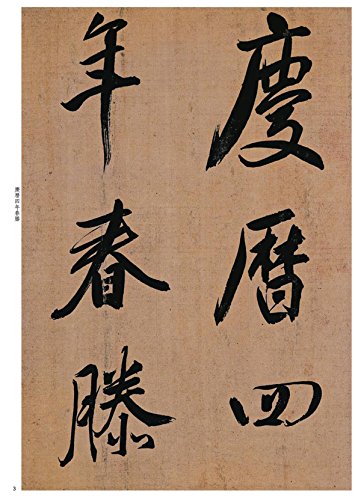 慶曆四
年春滕
慶曆四年春滕
3